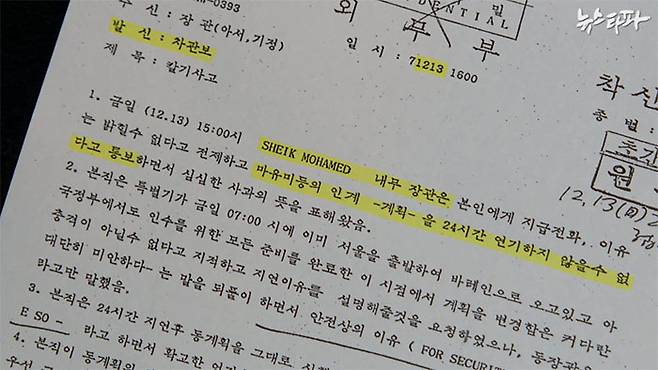 뉴스타파
-0393
밀
DENTIAL
외 무 부
수 신 : 장 관(아서,기정)
일 시 : 71213 1600
발 신 : 차관보
제 목 : 칼기사고
착신
종 별 :
원
12.13(日)
1. 금일 (12.13) 15:00시 SHEIK MOHAMED 내무 장관은 본인에게 지급전화, 이유
는 밝힐수 없다고 전제하고 마유미등의 인계 -계획- 을 24시간 연기하지 않을수 없
다고 통보하면서 심심한 사과의 뜻을 표해왔음.
2. 본직은 특별기가 금일 07:00 시에 이미 서울을 출발하여 바레인으로 오고있고 아
국정부에서도 인수를 위한 모든 준비를 완료한 이 시점에서 계획을 변경함은 커다란
충격이 아닐수 없다고 지적하고 지연이유를 설명해줄것을 요청하였으나, 동장관은
대단히 미안하다- 는 말을 되풀이 하면서 안전상의 이유 ( FOR SECURIT
라고만 말했음.
3. 본직은 24시간 지연후 동계획을 그대로
E SO - 라고 하면서 확고한
4. 본직이 동계획의
우선